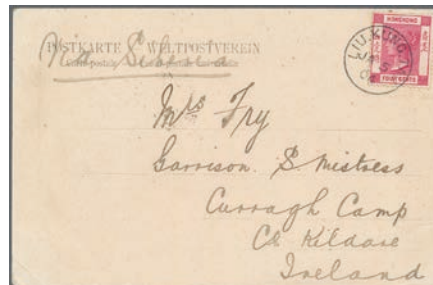 POSTKARTE WELTPOSTVEREIN
Via Siberia
HONGKONG
FOUR CENTS
LIU KUNG
Mrs Fry
Garrison S. Mistress
Curragh Camp
Co Kildare
Ireland